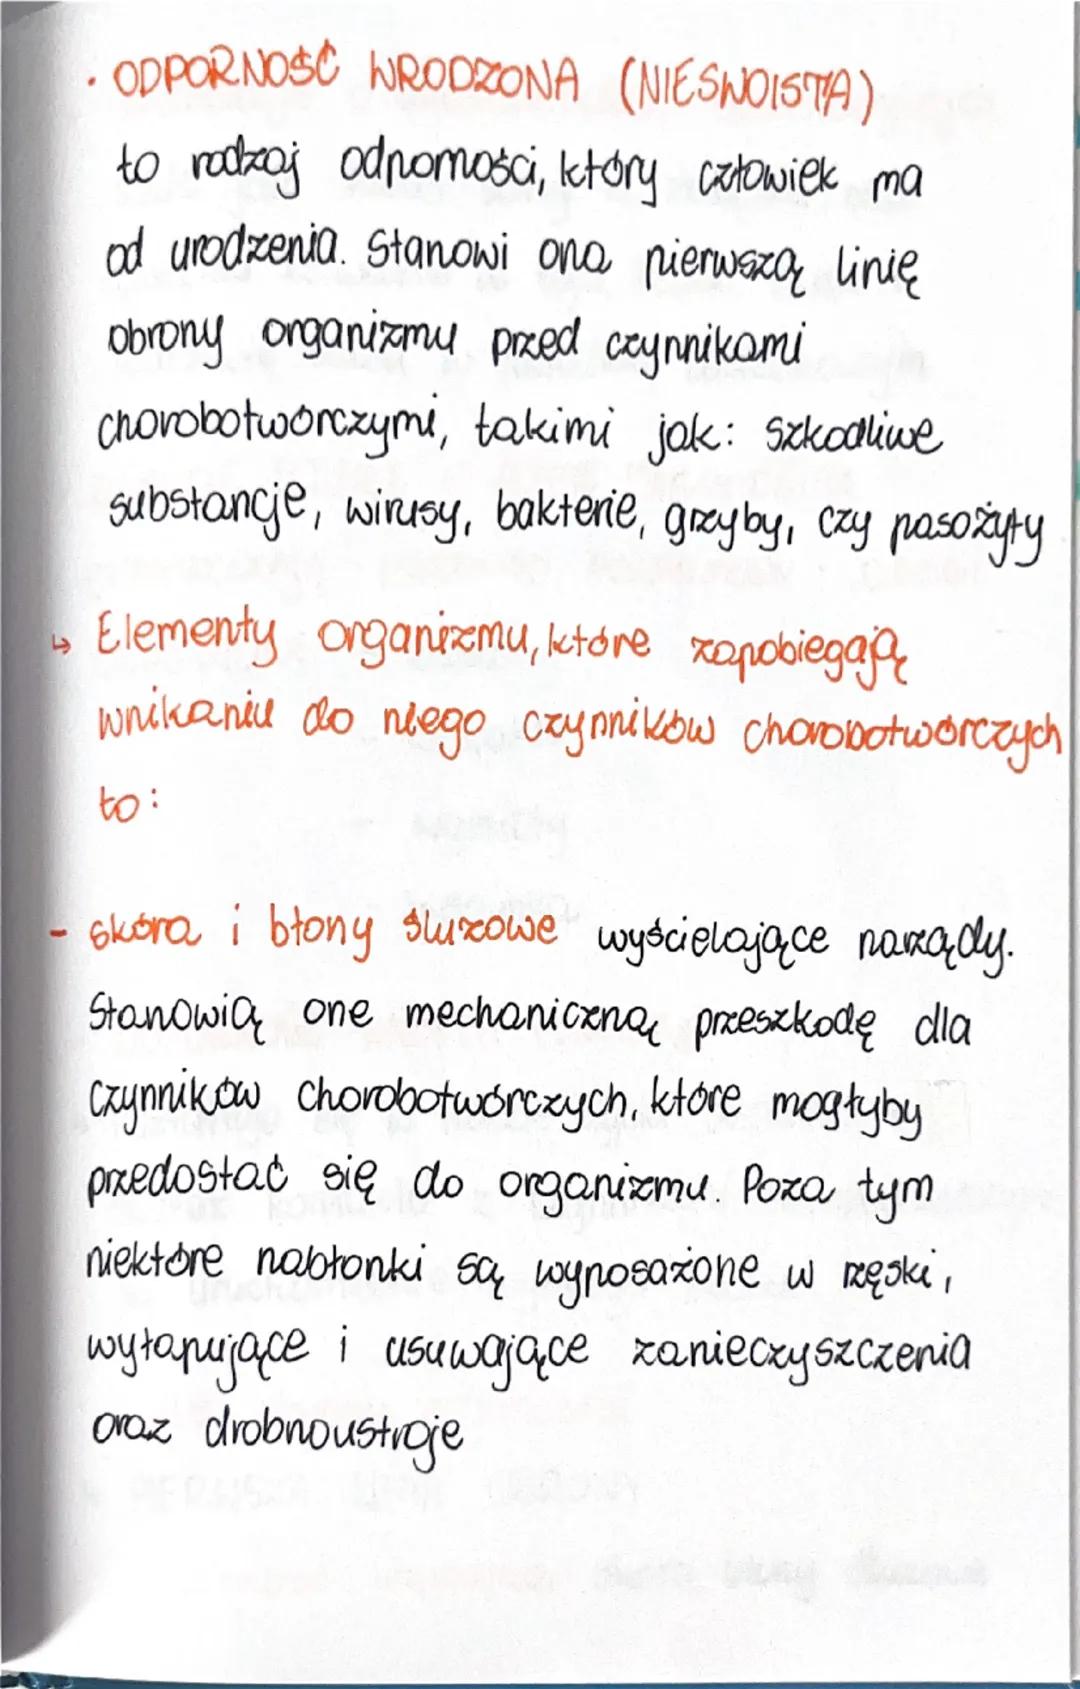 • ODPORNOŚĆ WRODZONA (NIESWOISTA)
to rodzaj odporności, który człowiek ma
od urodzenia. Stanowi ona pierwszą linię
obrony organizmu przed czynnikami
chorobotwórczymi, takimi jak: szkodliwe
substancje, wirusy, bakterie, grzyby, czy pasożyty
↳ Elementy organizmu, które zapobiegają
wnikaniu do niego czynników chorobotwórczych
to:
- skóra i błony śluzowe wyścielające narządy.
Stanowią one mechaniczną przeszkodę dla
czynników chorobotwórczych, które mogłyby
przedostać się do organizmu. Poza tym
niektóre nabłonki są wyposażone w rzęski,
wyłapujące i usuwające zanieczyszczenia
oraz drobnoustroje